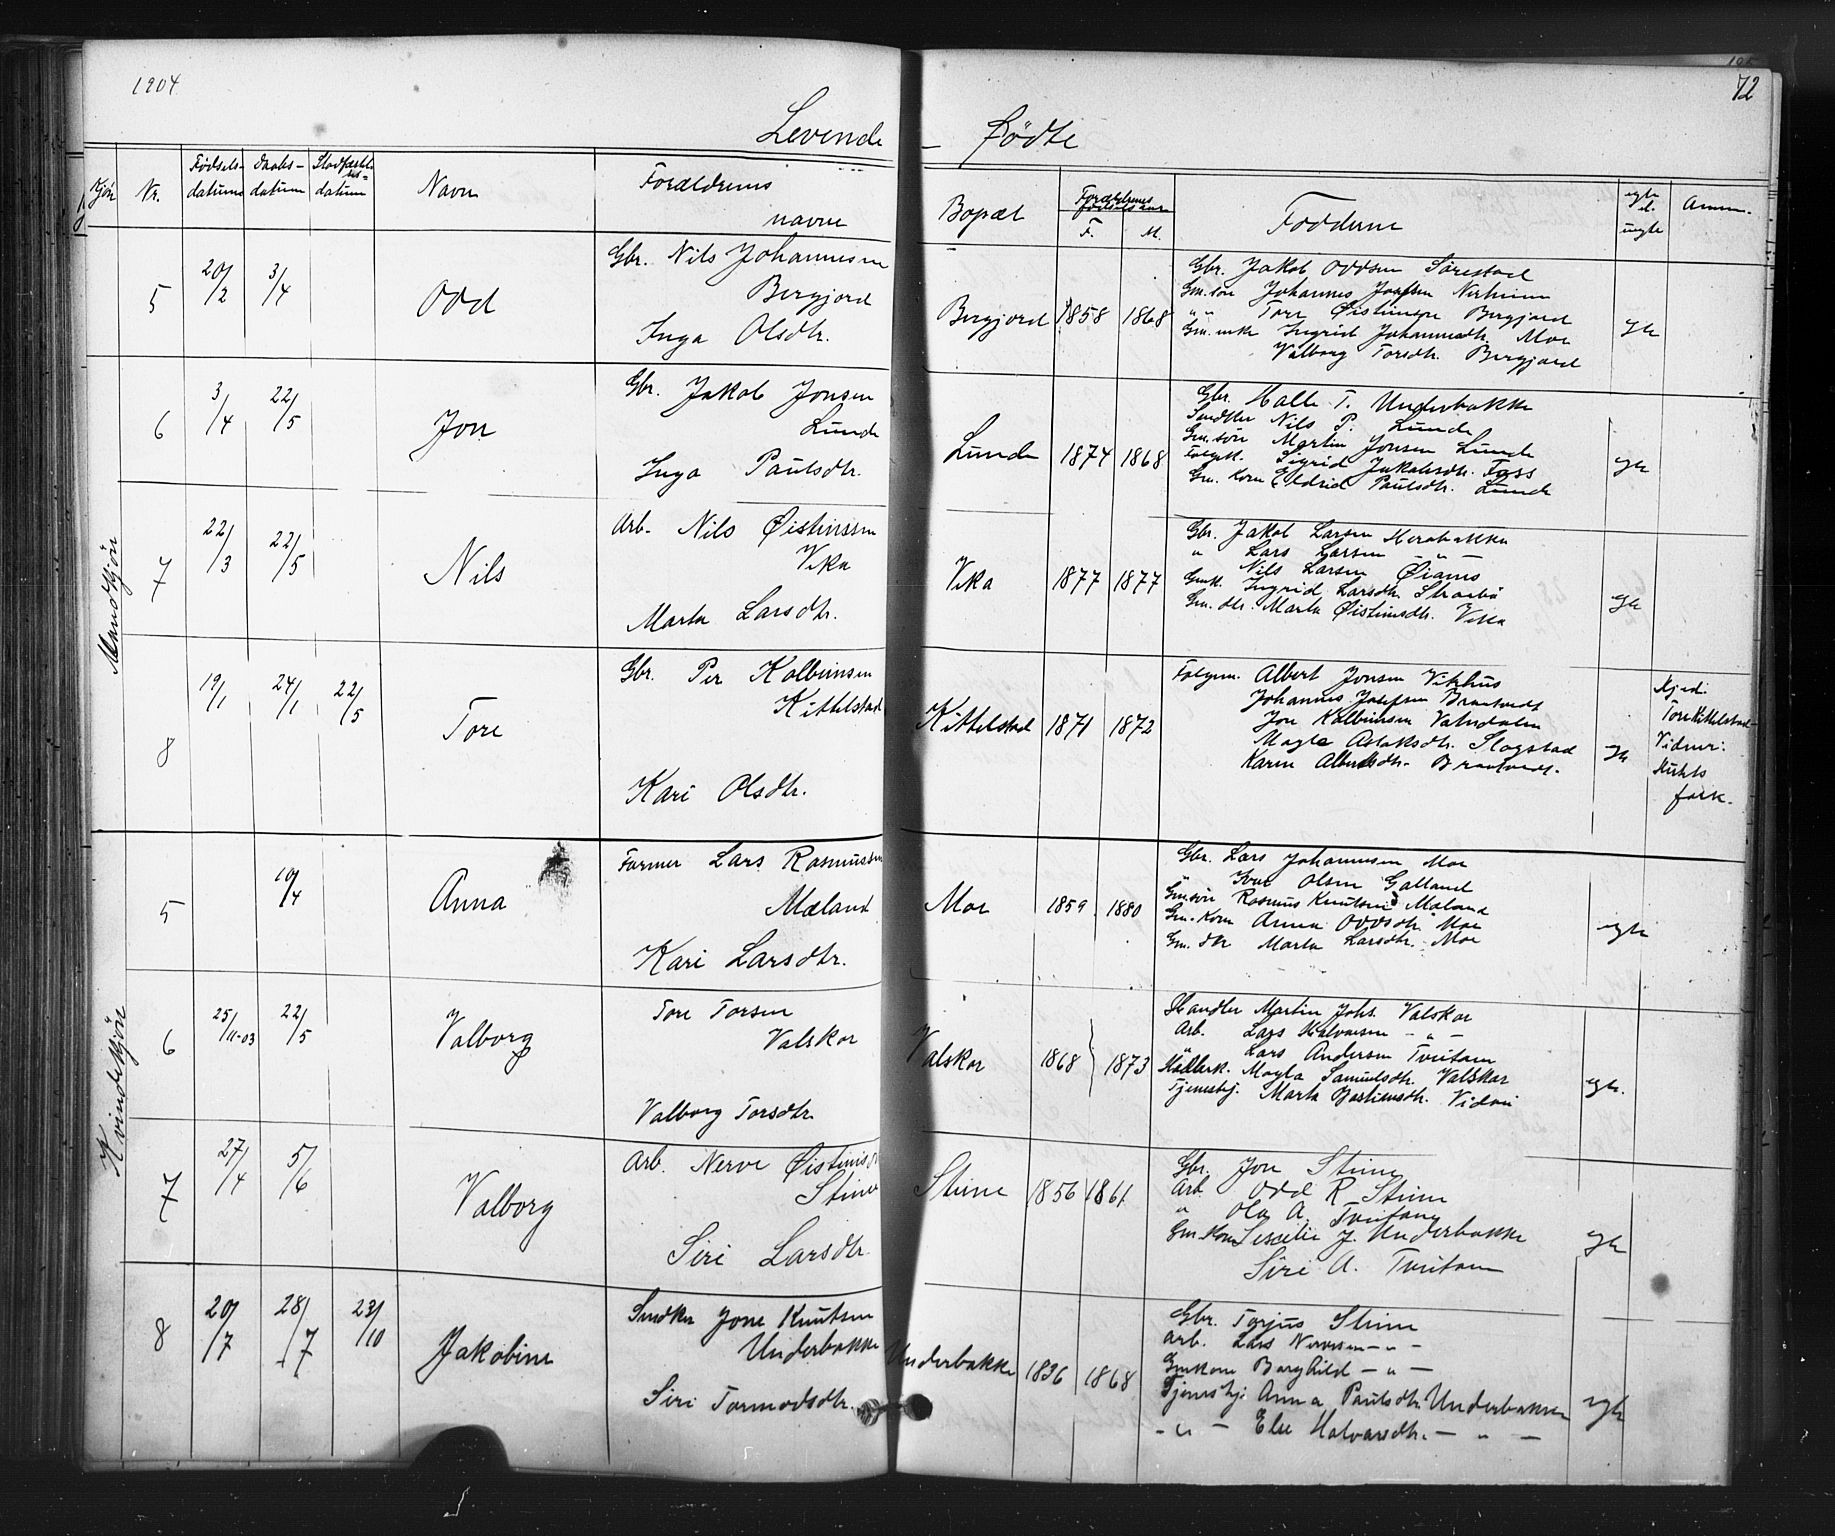 1904
72
Levende - Födte
Kjön
Nr.
Födsels-
datum
Daabs-
datum
Stadfæstel-
ses-
datum
Navn
Forældrenes
navne
Bopæl
Forældrenes
födselsaar
F.
M.
Fadderne
egte
el.
uegte
Anm.
Mandkjön
5
20/2
3/4
Odd
Gbr. Nils Johannesen
Bergjord
Inga Olsdtr.
Bergjord
1858
1868
Gbr. Jakob Oddsen Sörestad
Gm. sön Johannes Josefsen Nerheim
" " Tore Øistinsen Bergjord
Gm. enke Ingrid Johannesdtr. Moe
Valborg Torsdtr. Bergjord
egte
6
3/4
22/5
Jon
Gbr. Jakob Jonsen
Lunde
Inga Paulsdtr.
Lunde
1874
1868
Gbr. Halle T. Underbakke
Smedkr Nils P. Lunde
Gm. sön Martin Jonsen Lunde
Folgek. Sigrid Jakobsdtr. Foss
Gm. kone Eldrid Paulsdtr. Lunde
egte
7
22/3
22/5
Nils
Arb. Nils Øistinssen
Vika
Marta Larsdtr.
Vika
1877
1877
Gbr. Jakob Larsen Herabakka
" Lars Larsen - " -
Nils Larsen Øianes
Gmk. Ingrid Larsdtr. Strosbö
Gm. dtr. Marta Øistinsdtr. Vika
egte
8
19/1
24/1
22/5
Tore
Gbr. Per Kolbeinsen
Kittelstad
Kari Olsdtr.
Kittelstad
1871
1872
Folgem. Albert Jonsen Vikhus
Johannes Josefsen Brautvedt
Jon Kolbeinsen Vatndalen
Magle Aslaksdtr. Slogstad
Karen Albertsdtr. Brautvedt.
egte
Hjd:
Tore Kittelstad
Vidner:
Kirkes
folk.
Kvindekjön
5
10/4
Anna
Farmer Lars Rasmussen
Mæland
Kari Larsdtr.
Moe
1859
1880
Gbr. Lars Johannesen Moe
" Ivar Olsen Golland
Gm. sön Rasmus Knutsen Mæland
Gm. kone Anna Oddsdtr. Moe
Gm. dtr Marta Larsdtr. Moe
egte
6
25/11-03
22/5
Valborg
Tore Torsen
Valskor
Valborg Torsdtr.
Valskor
1868
1873
Handler Martin Johs. Valskor
Arb. Lars Halvorsen - " -
" Lars Andersen Tveitane
Handlerk. Magla Samuelsdtr. Valskor
Tjenestepj. Marta Bastiansdtr. Vidvei
egte.
7
27/4
5/6
Valborg
Arb. Nerve Øistinsen
Stene
Siri Larsdtr.
Stene
1856
1861
Gbr. Jon Stene
Arb. Odd R. Stene
" Ola A. Tveitane
Gm. kone Sescelie J. Underbakke
Siri A. Tveitane
egte
8
20/7
28/7
23/10
Jakobine
Smedkr Jone Knutsen
Underbakke
Siri Tormodsdtr.
Underbakke
1836
1868
Gbr. Torjus Stene
Arb. Lars Nervesen - " -
Gmkone Borghild - " -
Tjenestepj. Anna Paulsdtr. Underbakke
- " - Else Halvorsdtr. - " -
egte